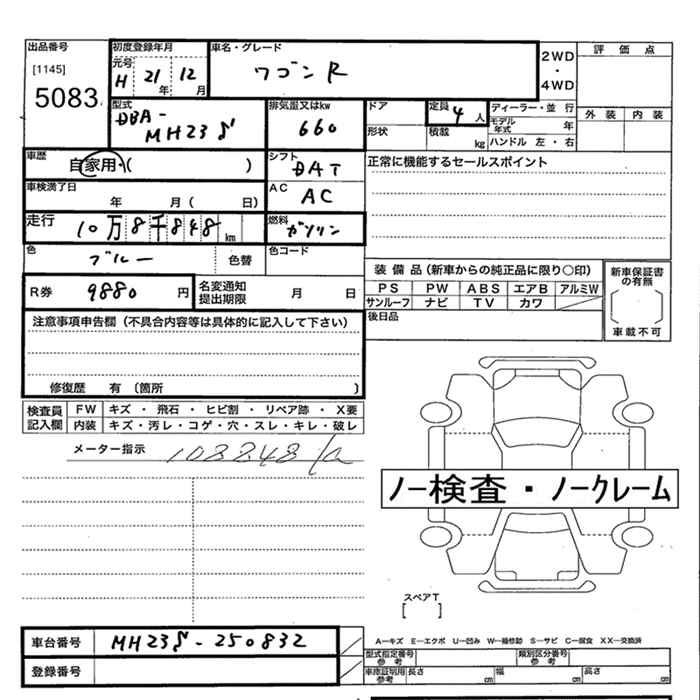 出品番号
[1145]
5083
初度登録年月
元号
H 21年 12月
車名・グレード
ワゴンR
2WD
・
4WD
評価点
外装 内装
型式
DBA-
MH23S
排気量又はkw
660
ドア
形状
定員 4人
積載 kg
ディーラー・並行
モデル年式 年
ハンドル 左・右
車歴
自家用・( )
シフト
DAT
正常に機能するセールスポイント
車検満了日
年 月( 日)
AC
AC
走行
10万8千848km
燃料
ガソリン
色
ブルー
色替
色コード
R券 9880円
名変通知
提出期限
月 日
装備品(新車からの純正品に限り〇印)
PS PW ABS エアB アルミW
サンルーフ ナビ TV カワ
新車保証書
の有無
( )
車載不可
後日品
注意事項申告欄(不具合内容等は具体的に記入して下さい)
修復歴 有〔箇所 〕
検査員
記入欄
FW キズ・飛石・ヒビ割・リペア跡・X要
内装 キズ・汚レ・コゲ・穴・スレ・キレ・破レ
メーター指示 108848km
ノー検査・ノークレーム
スペアT
[ ]
車台番号 MH23S-250832
登録番号
A－キズ E－エクボ U－凹み W－補修跡 S－サビ C－腐食 XX－交換済
型式指定番号
参考
類別区分番号
参考
車庫証明用
参考
長さ cm 幅 cm 高さ cm